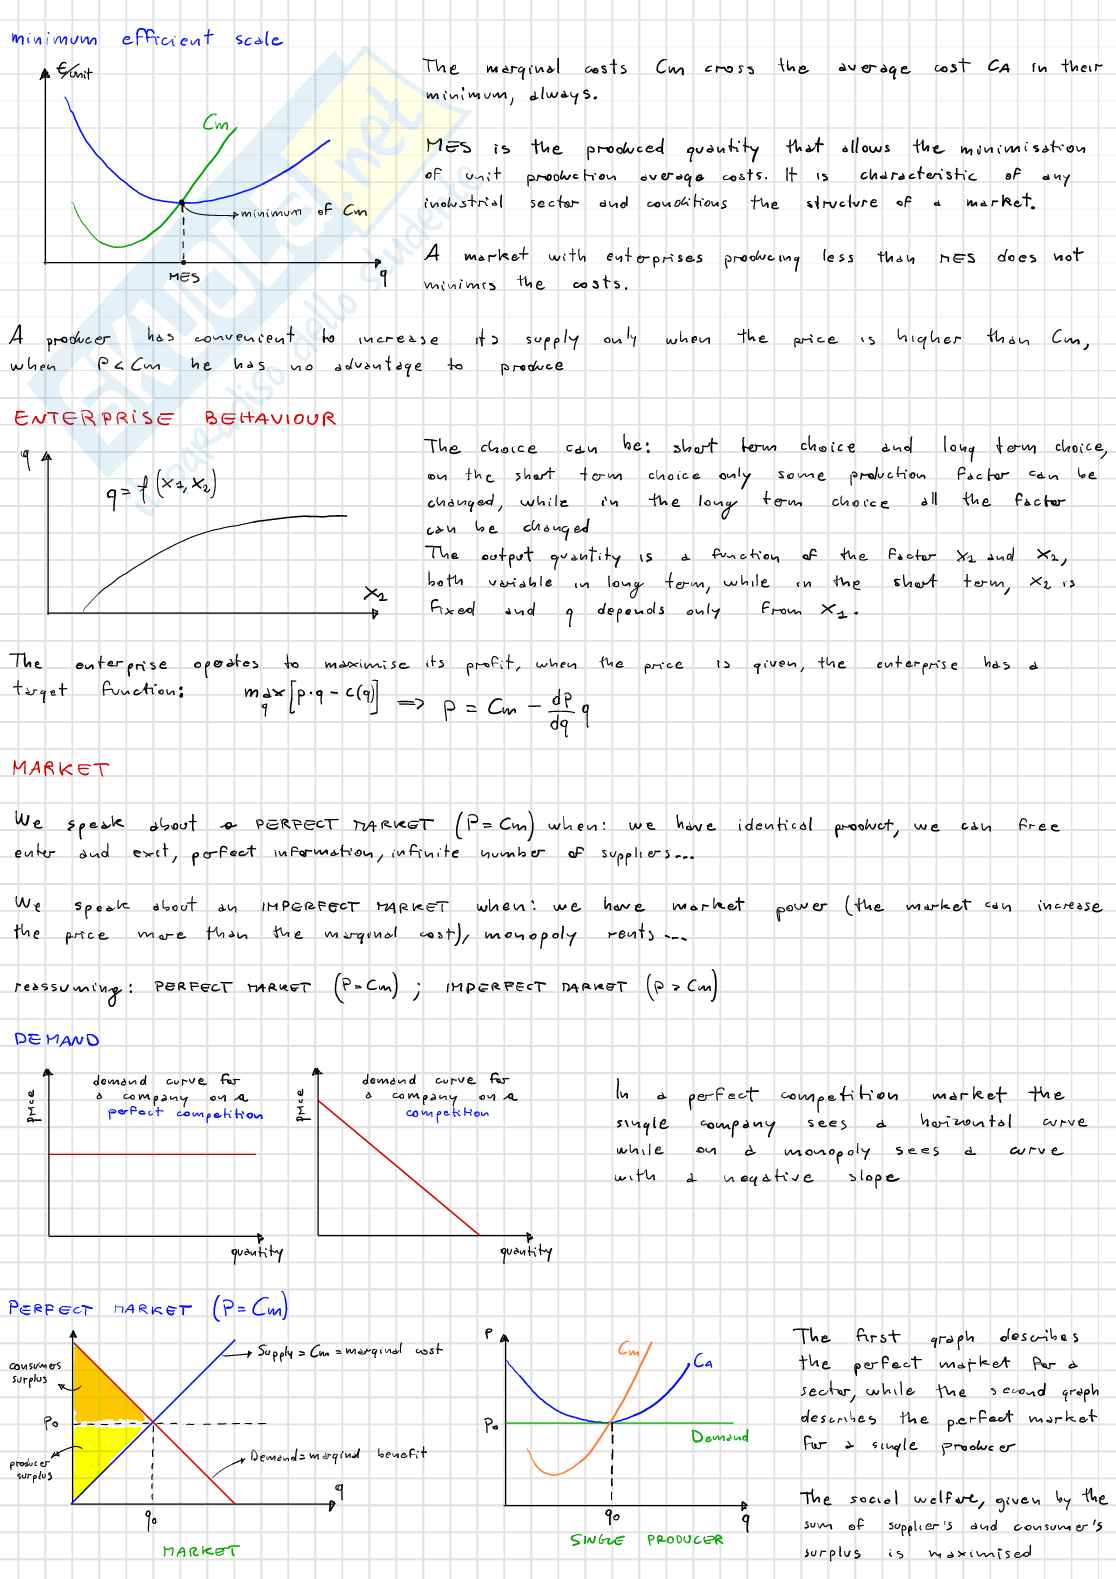 minimum efficient scale
€/unit
Cm
minimum of Cm
MES
q
The marginal costs Cm cross the average cost CA in their
minimum, always.
MES is the produced quantity that allows the minimisation
of unit production average costs. It is characteristic of any
industrial sector and conditions the structure of a market.
A market with enterprises producing less than MES does not
minimis the costs.
A producer has convenient to increase its supply only when the price is higher than Cm,
when P < Cm he has no advantage to produce
ENTERPRISE BEHAVIOUR
q
q = f (x1, x2)
x2
The choice can be: short term choice and long term choice,
on the short term choice only some production factor can be
changed, while in the long term choice all the factor
can be changed
The output quantity is a function of the factor x1 and x2,
both variable in long term, while in the short term, x2 is
fixed and q depends only from x1.
The enterprise operates to maximise its profit, when the price is given, the enterprise has a
target function: max q [p·q - c(q)] => p = Cm - dp/dq q
MARKET
We speak about a PERFECT MARKET (P = Cm) when: we have identical product, we can free
enter and exit, perfect information, infinite number of suppliers...
We speak about an IMPERFECT MARKET when: we have market power (the market can increase
the price more than the marginal cost), monopoly rents...
reassuming: PERFECT MARKET (P = Cm) ; IMPERFECT MARKET (P > Cm)
DEMAND
price
demand curve for
a company on a
perfect competition
quantity
price
demand curve for
a company on a
competition
quantity
In a perfect competition market the
single company sees a horizontal curve
while on a monopoly sees a curve
with a negative slope
PERFECT MARKET (P = Cm)
consumers
surplus
Po
producer
surplus
Supply = Cm = marginal cost
Demand = marginal benefit
q
qo
MARKET
P
Cm
CA
Po
Demand
qo
q
SINGLE PRODUCER
The first graph describes
the perfect market for a
sector, while the second graph
describes the perfect market
for a single producer
The social welfare, given by the
sum of supplier's and consumer's
surplus is maximised